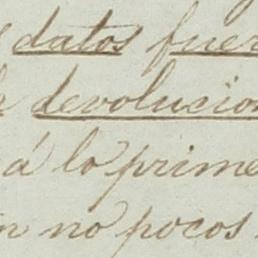 datos fuer
devolucion
á lo prime
no pocos